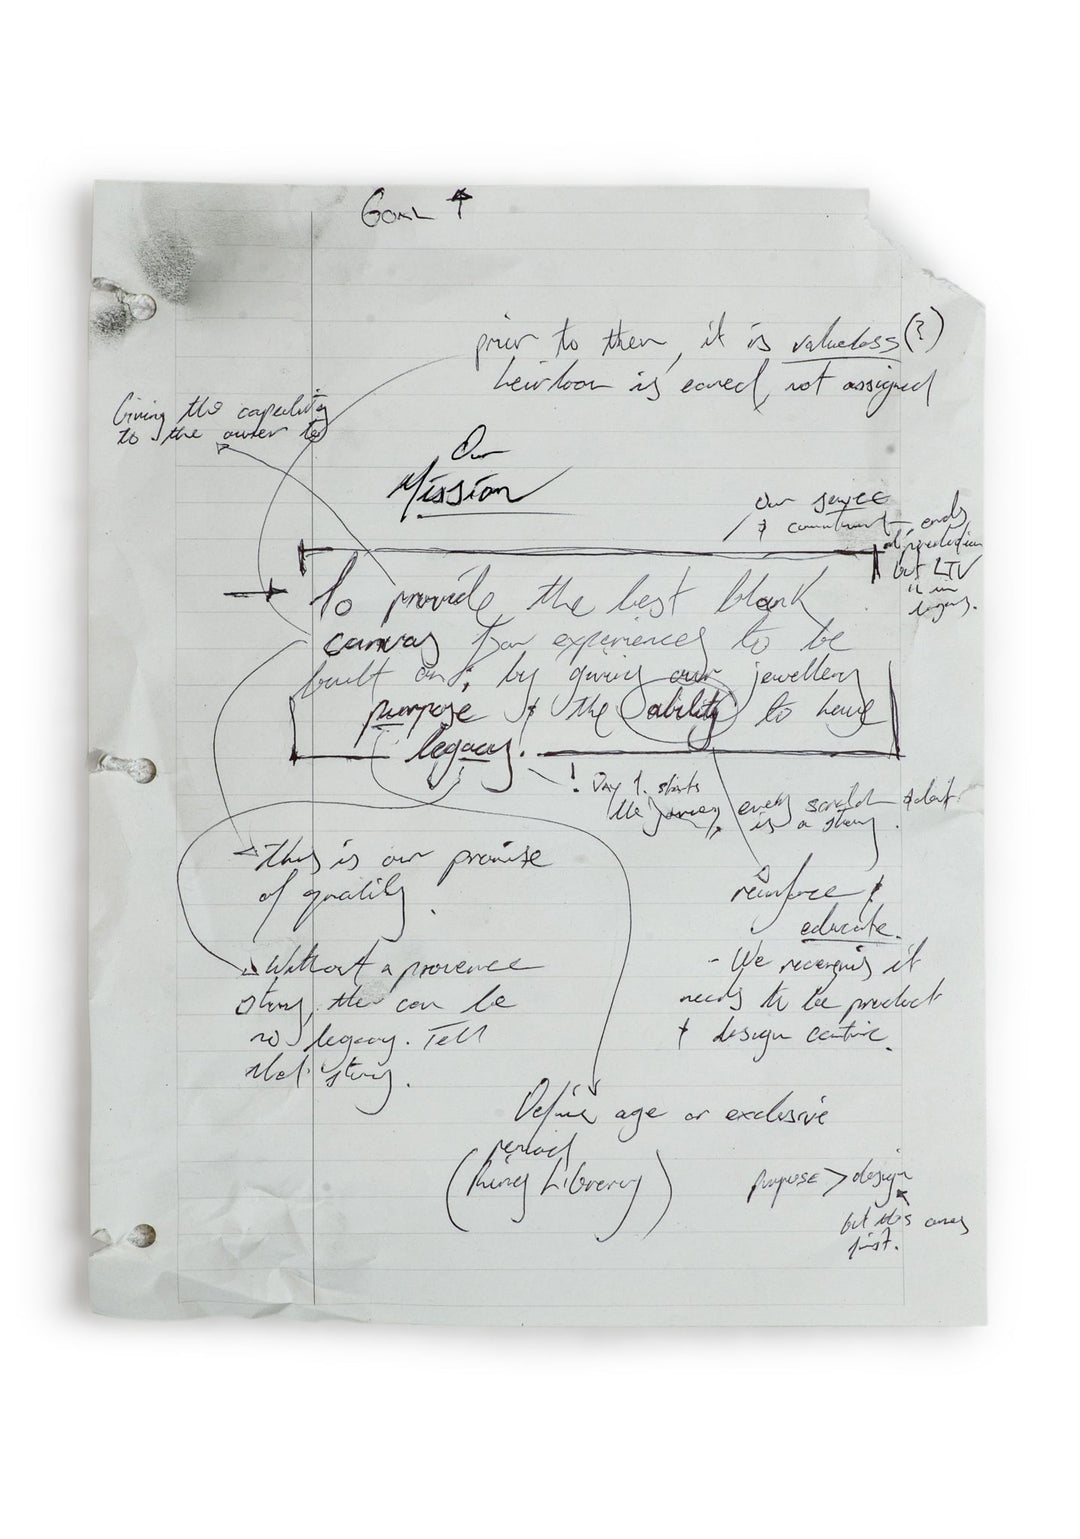 GOAL ↑
prior to then, it is valueless (?)
heirloom is earned, not assigned
Giving the capability
to the owner to
Our
Mission
Our service
& commitment ends
at production
but LTV
is in
legacy.
To provide the best blank
canvas for experiences to be
built on; by giving our jewellery
purpose & the ability to have
legacy.
! Day 1. starts
the journey, every scratch & dent
is a story.
This is our promise
of quality.
reinforce &
educate.
Without a provence
story, the can be
no legacy. Tell
that story.
- We recognis it
needs to be product
& design centric.
Define age or exclusive
period
(Ring Library)
purpose > design
but this comes
first.